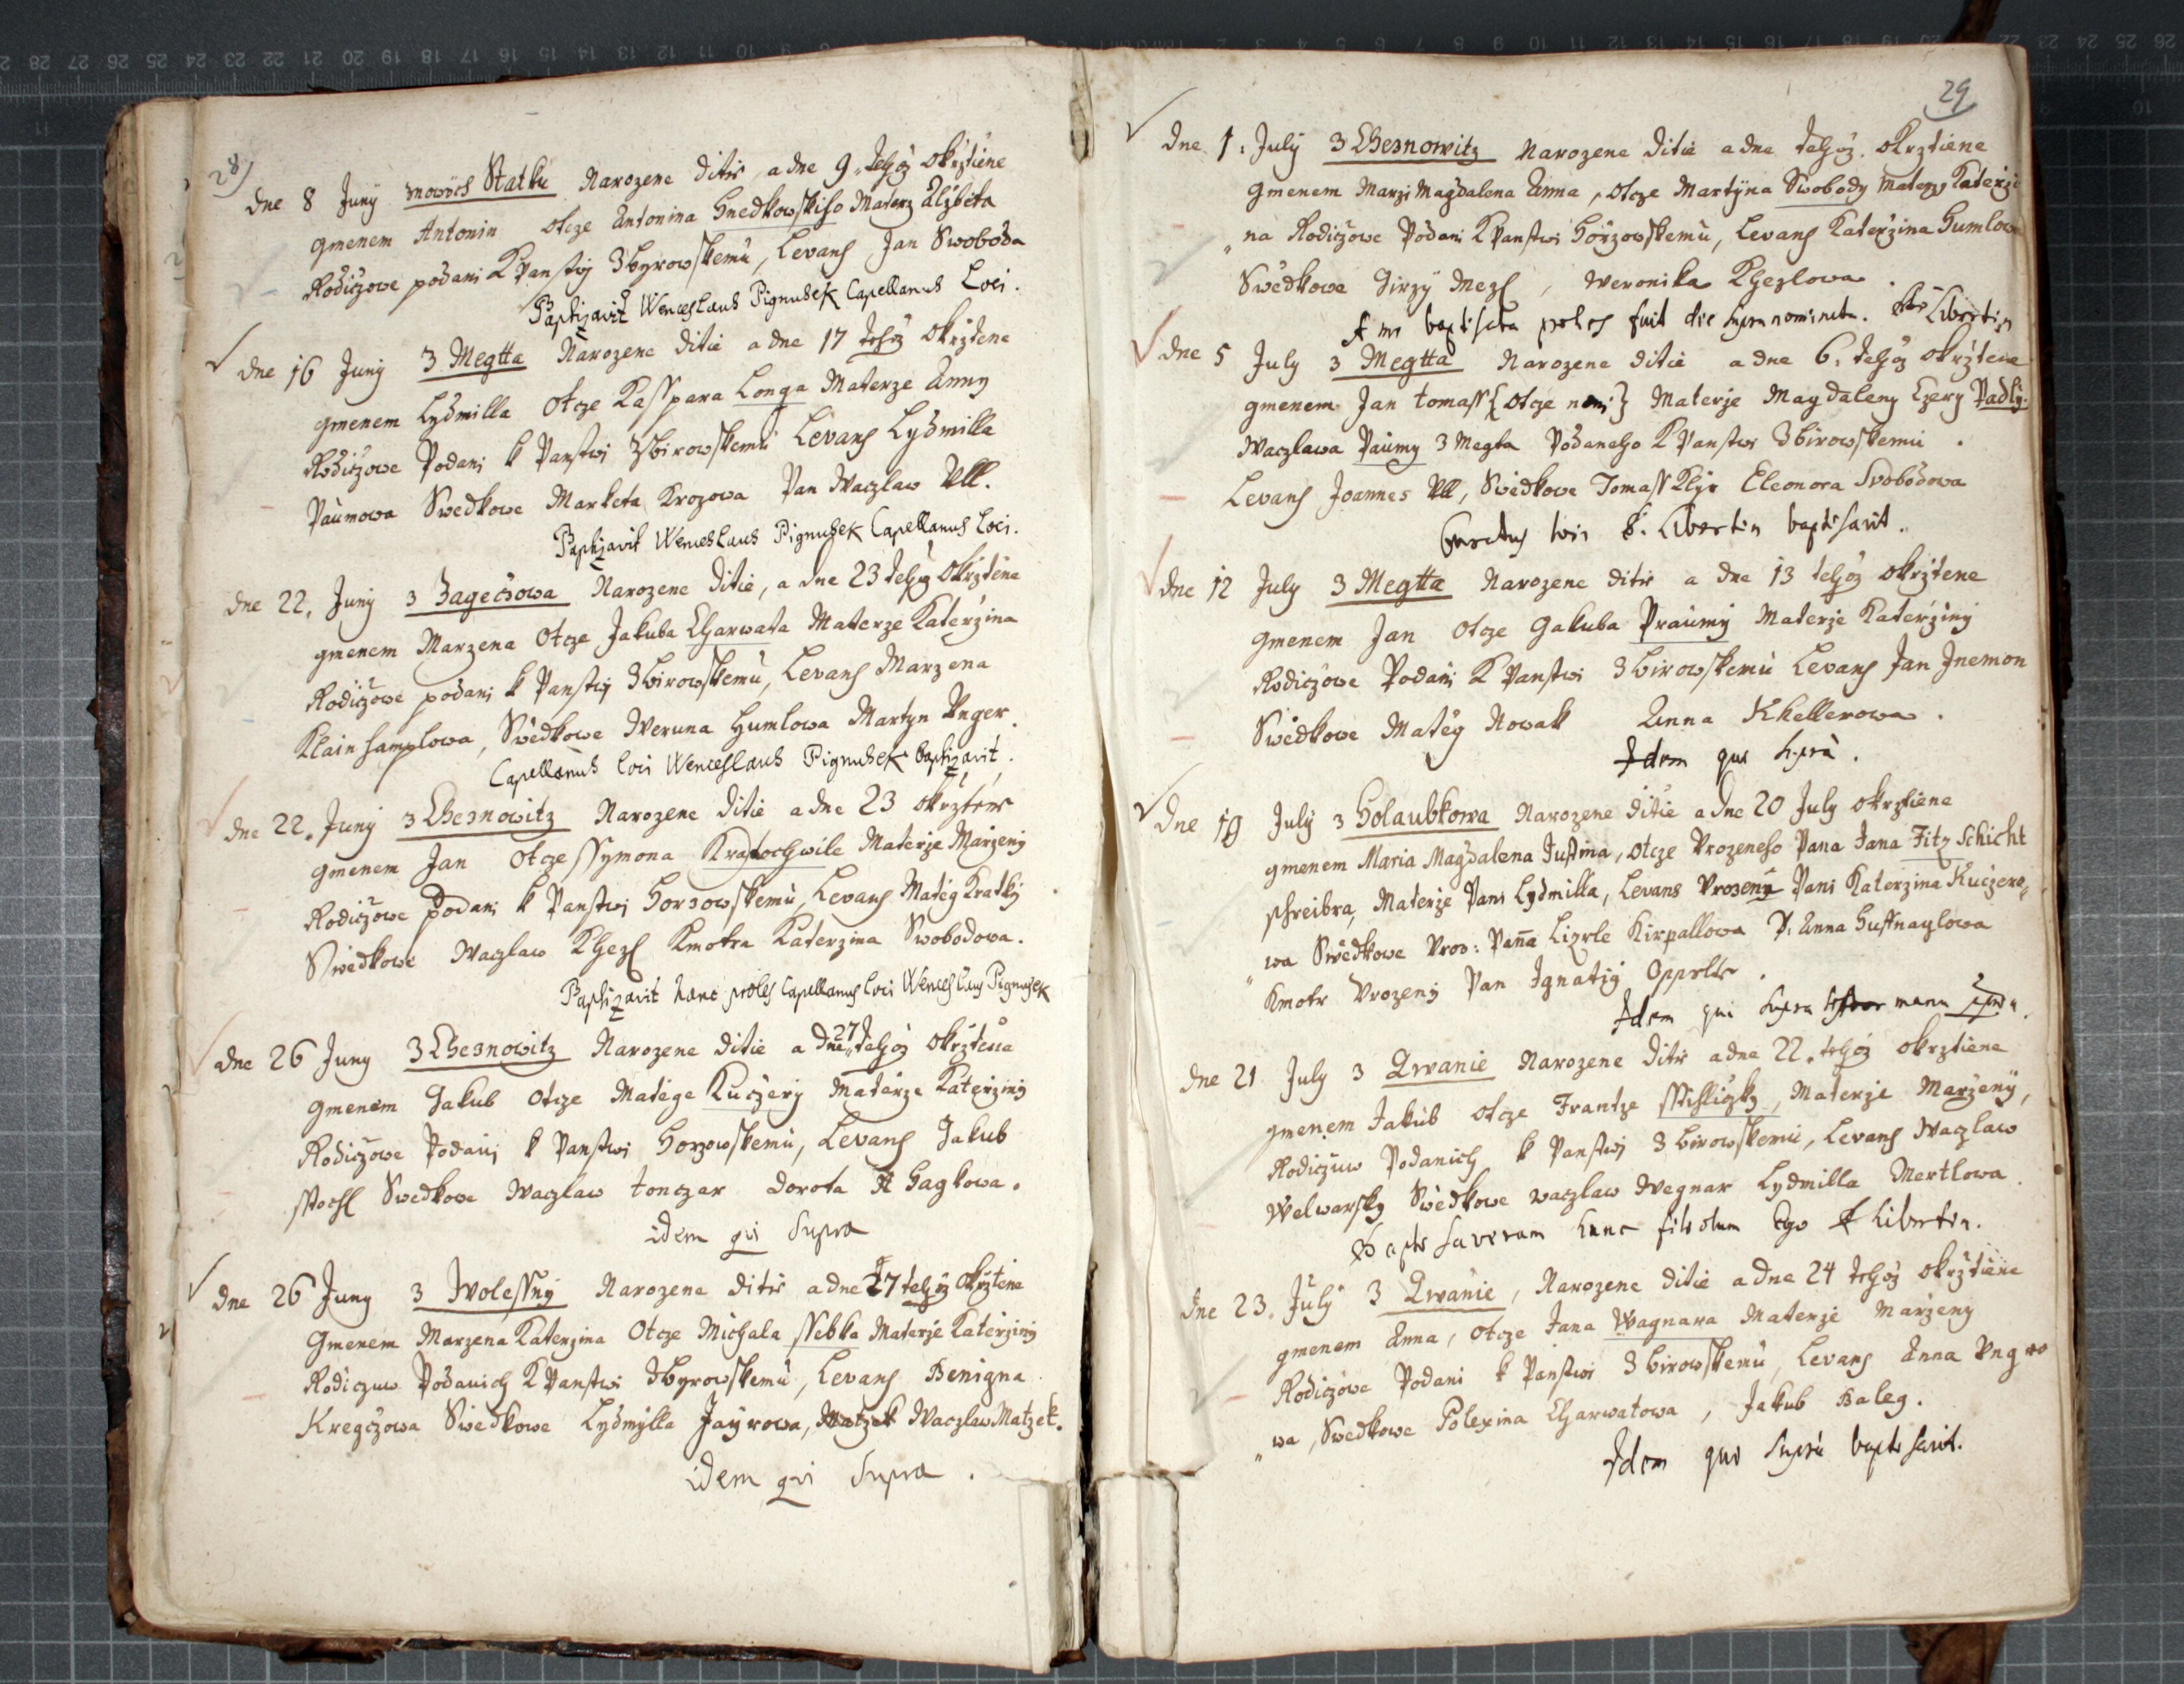 28)
dne 8 Juny znowych Statku Narozene ditie, a dne 9. tehož okrztiene
gmenem Antonin otcze Antonina Hnedkowskiho Materz Elzbeta
Rodiczowe podani k Panstwj Zbyrowskemu, Levans Jan Swoboda
Baptizavit Wenceslaus Pignusek Capellanus Loci.
dne 16 Juny z Megtta Narozene ditie a dne 17 tehož okrztene
gmenem Lydmilla otcze Kasspara Longa Materze Anny
Rodiczowe Podani k Panstwi Zbirowskemu Levans Lydmilla
Paumowa Swedkowe Marketa Krozowa Pan Waczlaw Ull.
Baptizavit Wenceslaus Pignusek Capellanus Loci.
dne 22. Juny z Hagečzowa Narozene ditie, a dne 23 tehož okrztene
gmenem Marzena otcze Jakuba Charwata Materze Katerzina
Rodiczowe podani k Panstwj Zbirowskemu, Levans Marzena
Klainhamplowa, Swedkowe Weruna Humlowa Martyn Unger.
Capellanus Loci Wenceslaus Pignusek baptizavit.
dne 22. Juny z Cheznowitz Narozene ditie a dne 23 okrztene
gmenem Jan otcze Ssymona Kratochwile Materze Marzeny
Rodiczowe podani k Panstwi Horzowskemu, Levans Mateg Kratky
Swedkowe Waczlaw Khezl Kmotra Katerzina Swobodowa.
Baptizavit hanc proles Capellanus Loci Wenceslaus Pignusek
dne 26 Juny z Cheznowitz Narozene ditie a dne 27 tehož okrztene
gmenem Jakub otcze Matege Kuczery Materze Katerziny
Rodiczowe Podani k Panstwi Horzowskemu, Levans Jakub
Swedkowe Waczlaw tonczar Dorota Hagkowa.
idem qui Supra
dne 26 Juny z Wolessny Narozene ditie a dne 27 tehož okrztene
Gmenem Marzena Katerzina Otcze Michala Ssebka Materze Katerziny
Rodiczuw Podanich k Panstwi Zbyrowskemu, Levans Benigna
Kregczowa Swedkowe Lydmylla Jayrowa, Waczlaw Matzek.
idem qui Supra.
29
dne 1. July z Cheznowitz Narozene ditie a dne tehož okrztiene
gmenem Marzi Magdalena Anna, otcze Martyna Swobody Materz Katerzi
na Rodiczowe Podani k Panstwi Horzowskemu, Levans Katerzina Humlow
Swedkowe Girzy Mezl, Weronika Khezlowa.
A me baptisata proles fuit die supra nominata. Libertin
dne 5 July z Megtta Narozene ditie a dne 6. tehož okrztene
gmenem Jan tomass {otcze neni} Materze Magdaleny Czery Padly
Waczlawa Paumy z Megta Podaneho k Panstwi Zbirowskemu.
Levans Joannes Ull, Swedkowe Tomass Eleonora Svobodowa
Libertin baptisavit.
dne 12 July z Megtta Narozene ditie a dne 13 tehož okrztene
gmenem Jan otcze Gakuba Praumy Materze Katerziny
Rodiczowe Podani k Panstwi Zbirowskemu Levans Jan Jnemon
Swedkowe Mateg Nowak Anna Khellerowa.
Idem qui supra.
dne 19 July z Holaubkowa Narozene ditie a dne 20 July okrztiene
gmenem Maria Magdalena Justina, otcze Urozeneho Pana Jana Fitz Schicht
schreibra, Materze Pani Lydmilla, Levans Urozeny Pani Katerzina Kuczero
wa Swedkowe Uroz: Panna Lizrle Kirpallowa P. Anna Hussnaylowa
Kmotr Urozeny Pan Ignatig Oppelt.
Idem qui supra manu
dne 21 July z Kwanie Narozene ditie a dne 22. tehož okrztiene
gmenem Jakub otcze Frantze Materze Marzeny,
Rodiczuw Podanich k Panstwj Zbirowskemu, Levans Waczlaw
Welwarsky Swedkowe waczlaw Wegnar Lydmilla Mertlowa.
Baptisaveram hanc filiolum Ego Libertin.
dne 23. July z Kwanie, Narozene ditie a dne 24 tehož okrztiene
gmenem Anna, otcze Jana Wagnara Materze Marzeny
Rodiczowe Podani k Panstwi Zbirowskemu, Levans Anna Ungro
wa, Swedkowe Polexina Charwatowa, Jakub Baleg.
Idem qui supra baptisavit.